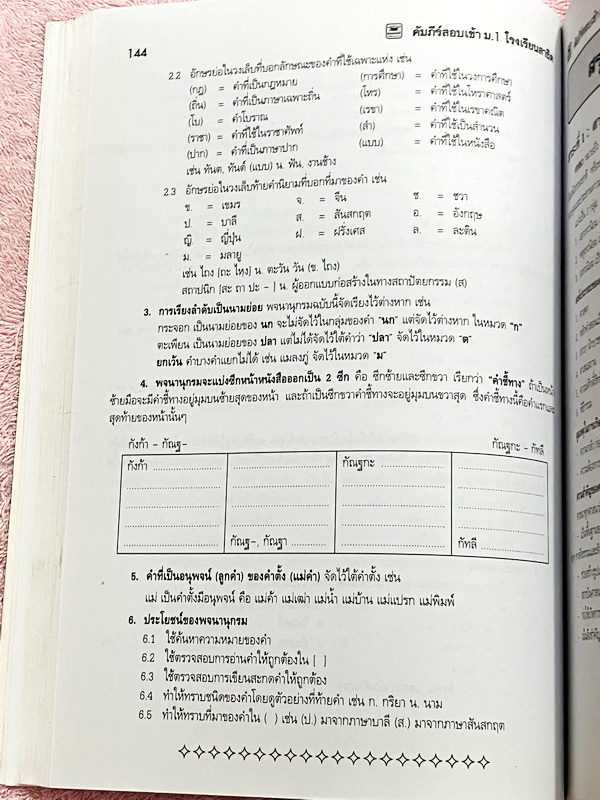 144
คัมภีร์สอบเข้า ม.1 โรงเรียนสาธิต
2.2 อักษรย่อในวงเล็บที่บอกลักษณะของคำที่ใช้เฉพาะแห่ง เช่น
(กฎ) = คำที่เป็นกฎหมาย (การศึกษา) = คำที่ใช้ในวงการศึกษา
(ถิ่น) = คำที่เป็นภาษาเฉพาะถิ่น (โหร) = คำที่ใช้ในโหราศาสตร์
(โบ) = คำโบราณ (เรขา) = คำที่ใช้ในเรขาคณิต
(ราชา) = คำที่ใช้ในราชาศัพท์ (สำ) = คำที่ใช้เป็นสำนวน
(ปาก) = คำที่เป็นภาษาปาก (แบบ) = คำที่ใช้ในหนังสือ
เช่น ทันต, ทันต์ (แบบ) น. ฟัน, งาช้าง
2.3 อักษรย่อในวงเล็บท้ายคำนิยามที่บอกที่มาของคำ เช่น
ข. = เขมร จ. = จีน ช. = ชวา
ป. = บาลี ส. = สันสกฤต อ. = อังกฤษ
ญิ. = ญี่ปุ่น ฝ. = ฝรั่งเศส ล. = ละติน
ม. = มลายู
เช่น ไถง [ถะ ไหง] น. ตะวัน วัน (ข. ไถง)
สถาปนิก [สะ ถา ปะ - ] น. ผู้ออกแบบก่อสร้างในทางสถาปัตยกรรม (ส)
3. การเรียงลำดับเป็นนามย่อย พจนานุกรมฉบับนี้จัดเรียงไว้ต่างหาก เช่น
กระจอก เป็นนามย่อยของ นก จะไม่จัดไว้ในกลุ่มของคำ "นก" แต่จัดไว้ต่างหาก ในหมวด "ก"
ตะเพียน เป็นนามย่อยของ ปลา แต่ไม่ได้จัดไว้ใต้คำว่า "ปลา" จัดไว้ในหมวด "ต"
ยกเว้น คำบางคำแยกไม่ได้ เช่น แมลงภู่ จัดไว้ในหมวด "ม"
4. พจนานุกรมจะแบ่งซีกหน้าหนังสือออกเป็น 2 ซีก คือ ซีกซ้ายและซีกขวา เรียกว่า "คำชี้ทาง" ถ้าเป็นหน้า
ซ้ายมือจะมีคำชี้ทางอยู่มุมบนซ้ายสุดของหน้า และถ้าเป็นซีกขวาคำชี้ทางจะอยู่มุมบนขวาสุด ซึ่งคำชี้ทางนี้คือคำแรกและ
สุดท้ายของหน้านั้นๆ
กังก้า - กัณฐ- กัณฐกะ - กัทลี
กังก้า ................ กัณฐกะ ................
กัณฐ-, กัณฐา ........ กัทลี ................
5. คำที่เป็นอนุพจน์ (ลูกคำ) ของคำตั้ง (แม่คำ) จัดไว้ใต้คำตั้ง เช่น
แม่ เป็นคำตั้งมีอนุพจน์ คือ แม่ค้า แม่เฒ่า แม่น้ำ แม่บ้าน แม่แปรก แม่พิมพ์
6. ประโยชน์ของพจนานุกรม
6.1 ใช้ค้นหาความหมายของคำ
6.2 ใช้ตรวจสอบการอ่านคำให้ถูกต้องใน [ ]
6.3 ใช้ตรวจสอบการเขียนสะกดคำให้ถูกต้อง
6.4 ทำให้ทราบชนิดของคำโดยดูตัวอย่างที่ท้ายคำ เช่น ก. กริยา น. นาม
6.5 ทำให้ทราบที่มาของคำใน ( ) เช่น (ป.) มาจากภาษาบาลี (ส.) มาจากภาษาสันสกฤต